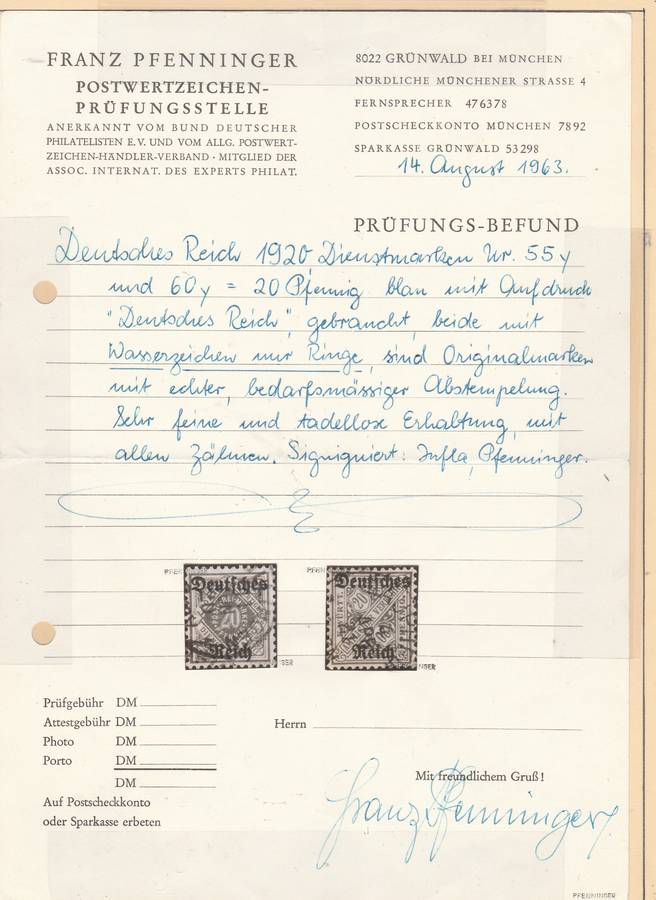 FRANZ PFENNINGER
POSTWERTZEICHEN-
PRÜFUNGSSTELLE
ANERKANNT VOM BUND DEUTSCHER
PHILATELISTEN E.V. UND VOM ALLG. POSTWERT-
ZEICHEN-HÄNDLER-VERBAND · MITGLIED DER
ASSOC. INTERNAT. DES EXPERTS PHILAT.
8022 GRÜNWALD BEI MÜNCHEN
NÖRDLICHE MÜNCHENER STRASSE 4
FERNSPRECHER 476378
POSTSCHECKKONTO MÜNCHEN 7892
SPARKASSE GRÜNWALD 53298
14. August 1963.
PRÜFUNGS-BEFUND
Deutsches Reich 1920 Dienstmarken Nr. 55y
und 60y = 20 Pfennig blau mit Aufdruck
"Deutsches Reich", gebraucht, beide mit
Wasserzeichen nur Ringe, sind Originalmarken
mit echter, bedarfsmässiger Abstempelung.
Sehr feine und tadellose Erhaltung, mit
allen Zähnen. Signigniert: Infla, Pfenninger.
PFEN
Deutsches
20
Reich
GER
PFEN
Deutsches
20
Reich
NGER
Prüfgebühr DM
Attestgebühr DM
Photo DM
Porto DM
DM
Auf Postscheckkonto
oder Sparkasse erbeten
Herrn
Mit freundlichem Gruß!
Franz Pfenninger
PFENNINGER